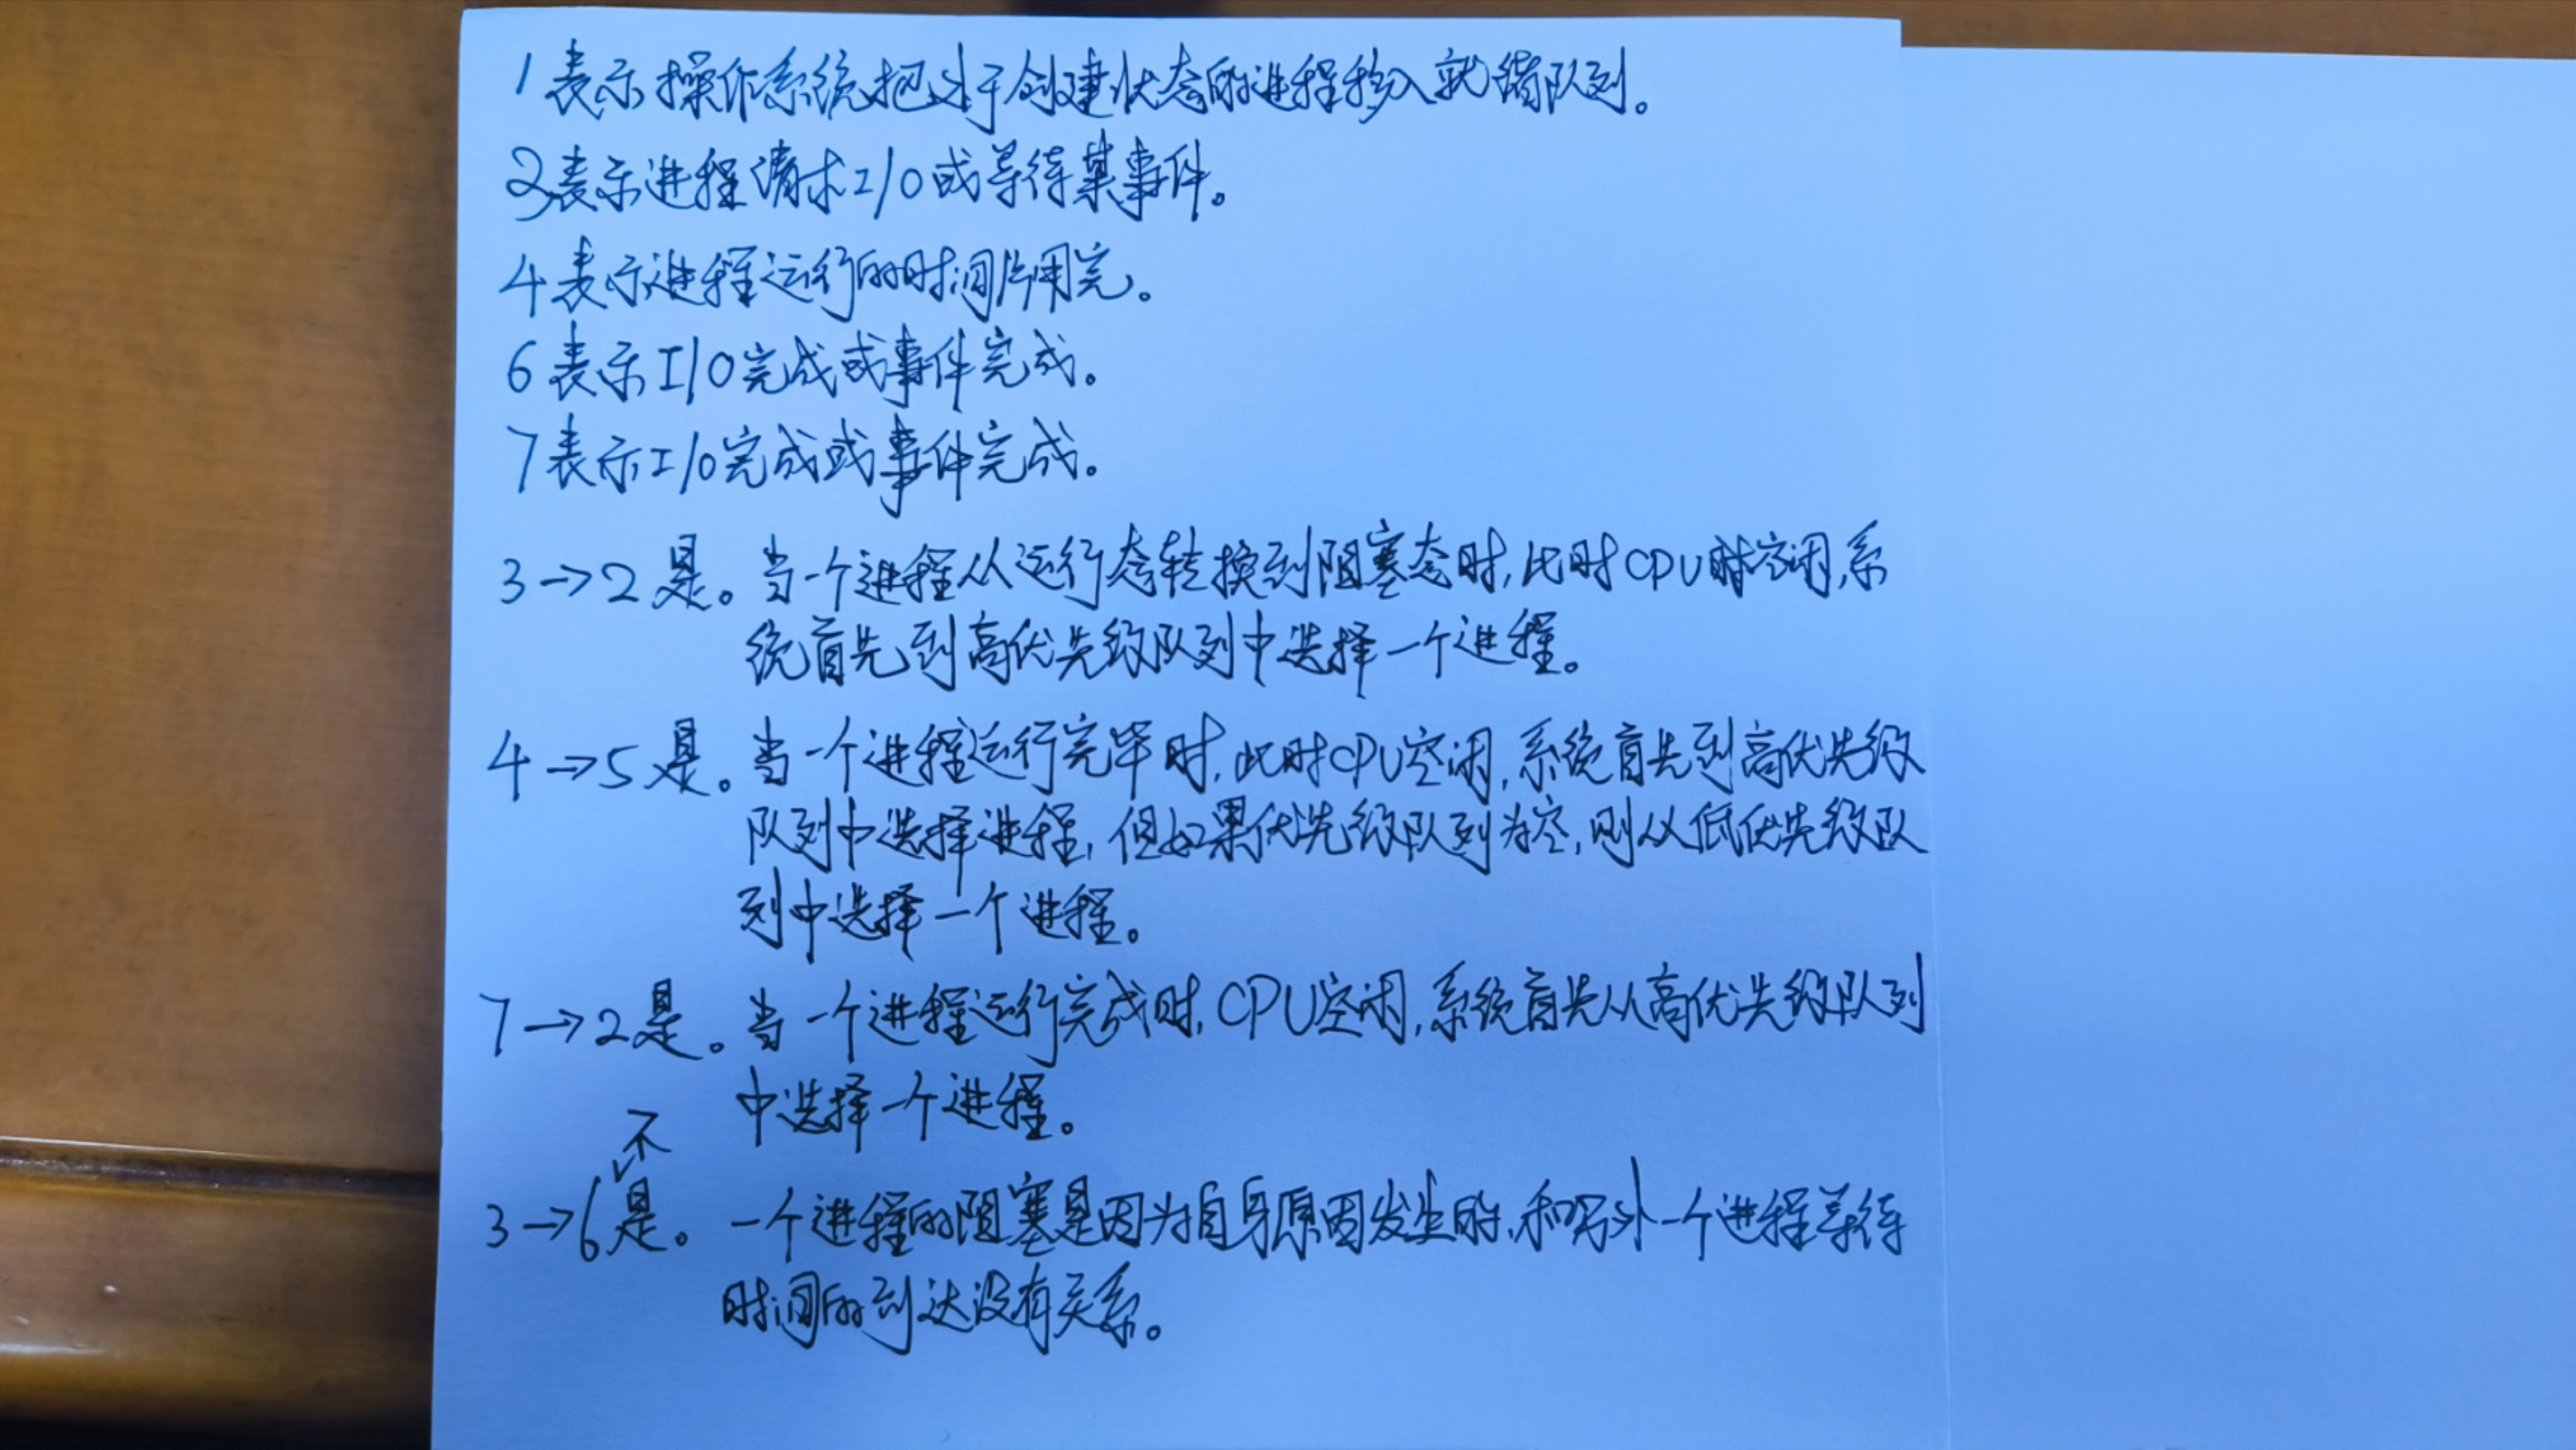 1 表示操作系统把处于创建状态的进程移入就绪队列。
2 表示进程请求I/O或等待某事件。
4 表示进程运行的时间片用完。
6 表示I/O完成或事件完成。
7 表示I/O完成或事件完成。
3→2 是。当一个进程从运行态转换到阻塞态时,此时CPU时空闲,系
统首先到高优先级队列中选择一个进程。
4→5 是。当一个进程运行完毕时,此时CPU空闲,系统首先到高优先级
队列中选择进程,但如果优先级队列为空,则从低优先级队
列中选择一个进程。
7→2 是。当一个进程运行完成时,CPU空闲,系统首先从高优先级队列
中选择一个进程。
3→6 不是。一个进程的阻塞是因为自身原因发生的,和另外一个进程等待
时间的到达没有关系。